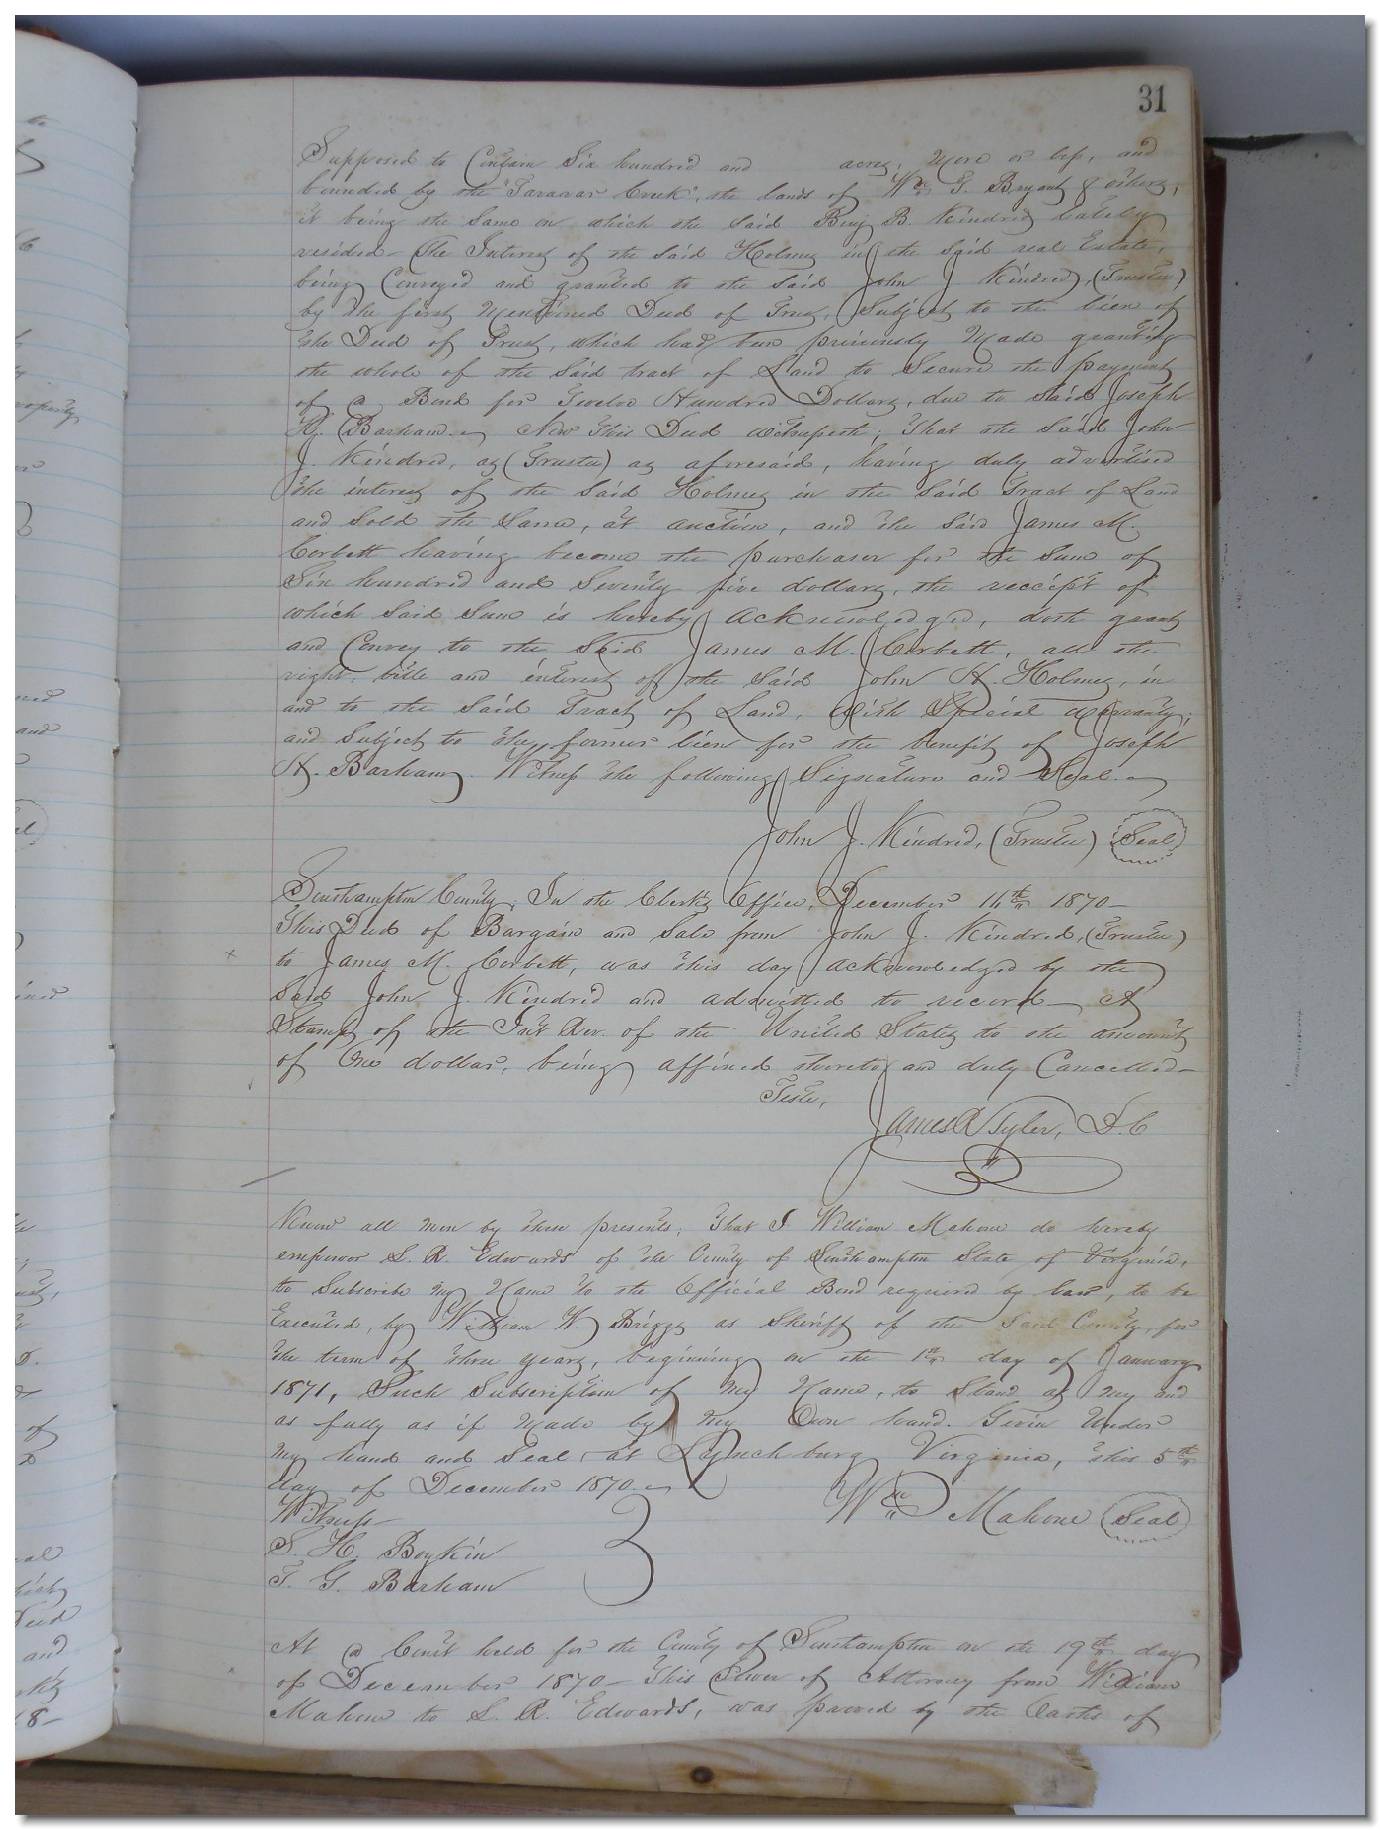 31
Supposed to Contain Six hundred and acres, More or less, and
bounded by the "Tararar Creek", the lands of Wm. G. Bryant & others,
it being the Same on which the said Benj B. Kindred lately
resided - The Interest of the said Holmes in the said real Estate,
being Conveyed and granted to the said John J Kindred, (Trustee)
by the first Mentioned Deed of Trust, Subject to the lien of
the Deed of Trust, which had been previously Made granting
the whole of the said tract of Land to Secure the payment
of a Bond for Twelve Hundred Dollars, due to said Joseph
H. Barham. Now This Deed witnesseth, That the said John
J. Kindred, as (Trustee) as aforesaid, having duly advertised
the interest of the Said Holmes in the said Tract of Land
and Sold the Same, at auction, and the said James M.
Corbett having become the purchaser for the Sum of
Six hundred and Seventy five dollars, the receipt of
which said Sum is hereby acknowledged, doth grant
and Convey to the Said James M. Corbett, all the
right, title and interest of the said John H. Holmes, in
and to the said Tract of Land, With Special warranty;
and Subject to the former lien for the benefit of Joseph
H. Barham. Witness the following Signature and Seal.
John J. Kindred, (Trustee) Seal
Southampton County, In the Clerk's Office, December 14th 1870 -
This Deed of Bargain and Sale from John J. Kindred, (Trustee)
to James M. Corbett, was this day acknowledged by the
said John J. Kindred and admitted to record - A
Stamp of the Int Rev. of the United States to the amount
of One dollar, being affixed thereto and duly Cancelled -
Teste,
James R Tyler, D. C
Know all men by these presents, That I William Mahone do hereby
empower L. R. Edwards of the County of Southampton State of Virginia,
to Subscribe my Name to the Official Bond required by law, to be
Executed, by William W Briggs as Sheriff of the said County, for
the term of three years, beginning on the 1st day of January
1871, Such Subscription of my Name, to Stand as my and
as fully as if Made by my Own hand. Given Under
my hand and Seal, at Lynchburg Virginia, this 5th
day of December 1870.
Wm Mahone Seal
Witness
S. H. Boykin
T. G. Barham
At a Court held for the County of Southampton on the 19th day
of December 1870 - This Power of Attorney from William
Mahone to L. R. Edwards, was proved by the Oaths of